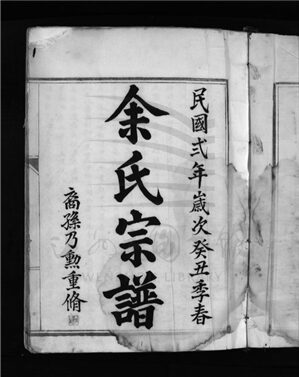 民國弍年歲次癸丑季春
余氏宗譜
裔孫乃勲重脩